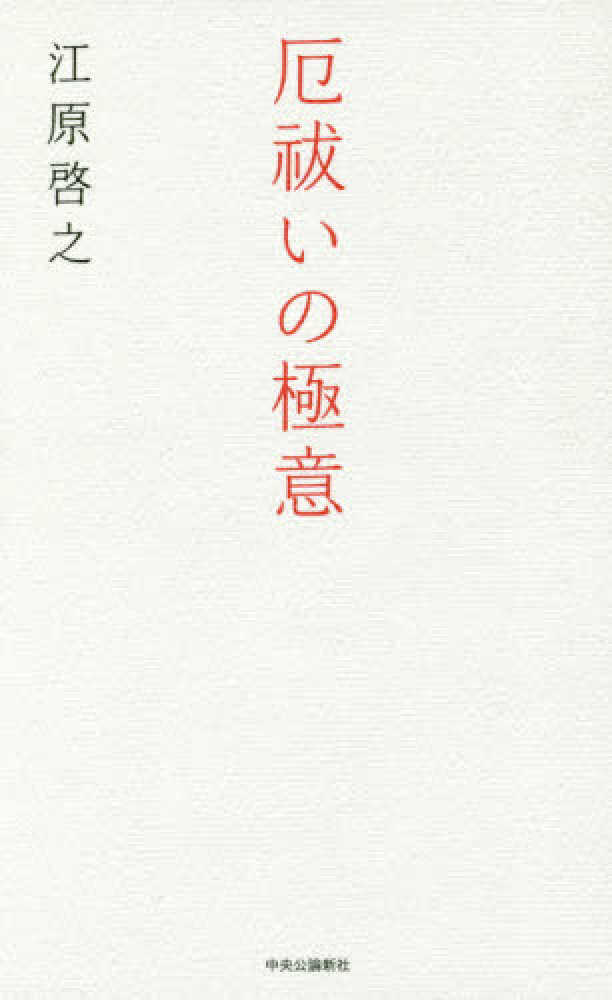 厄祓いの極意
江原啓之
中央公論新社